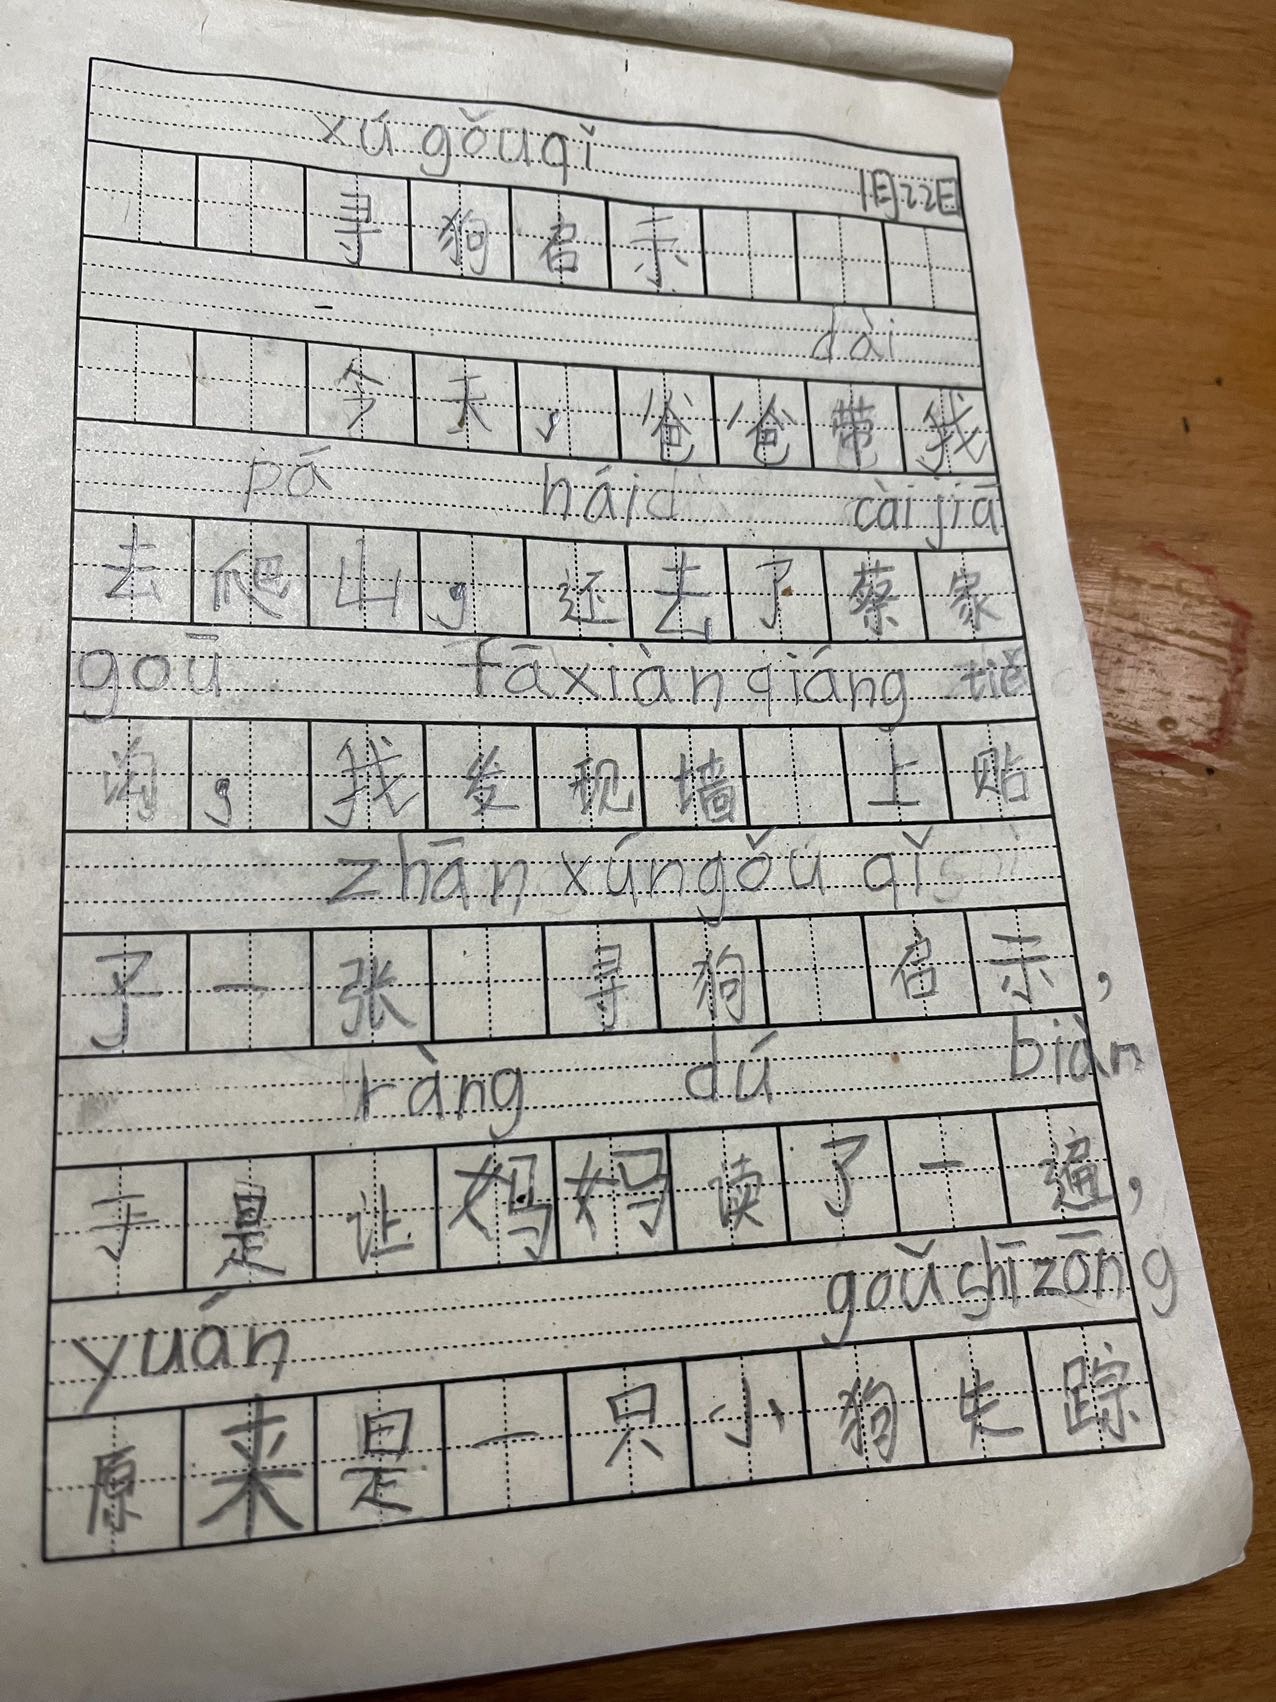 xú gǒu qǐ
1月22日
寻狗启示
dài
今天,爸爸带我
pá hái cài jiā
去爬山,还去了蔡家
goū fāxiàn qiáng tiē
沟,我发现墙 上贴
zhān xún gǒu qǐ shì
了一张 寻狗 启示,
ràng dú biàn
于是让妈妈读了一遍,
yuán goǔ shī zōng
原来是一只小狗失踪